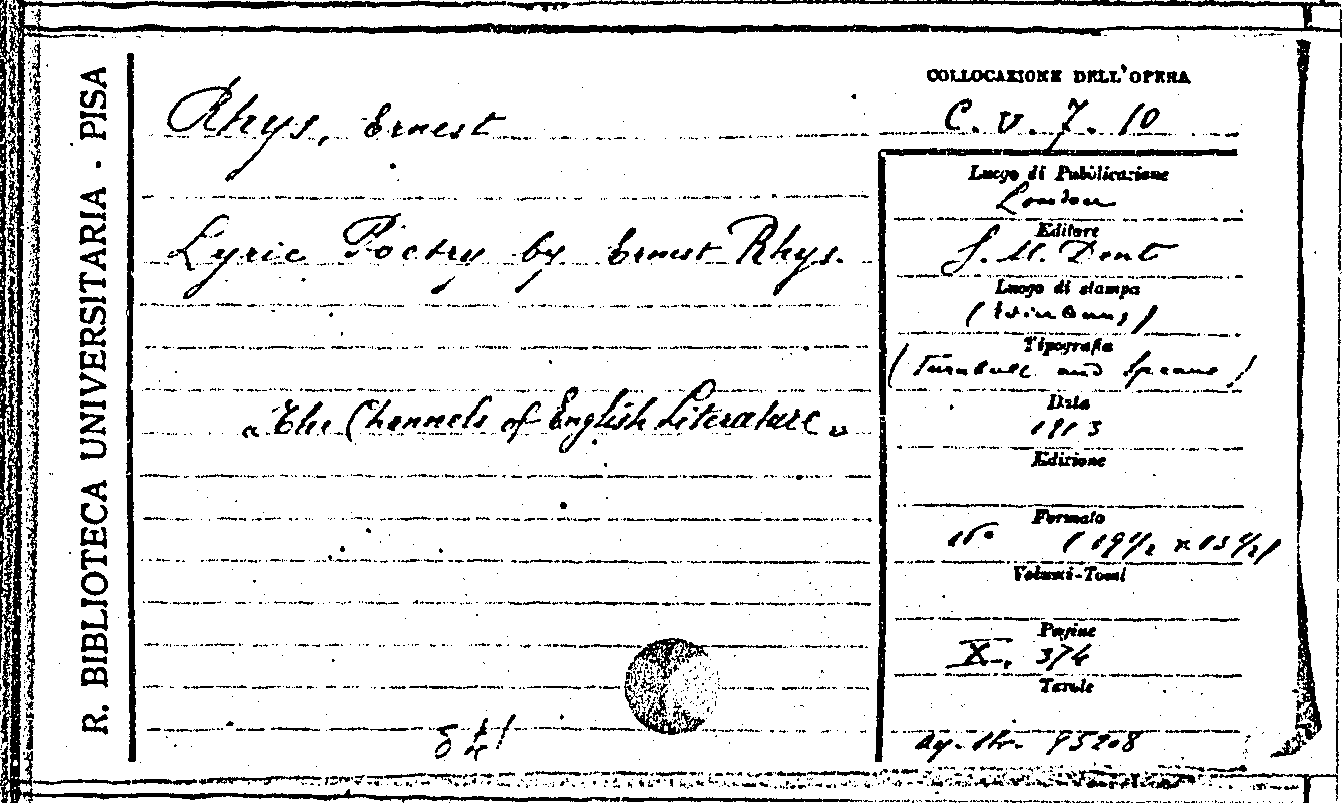 R. BIBLIOTECA UNIVERSITARIA - PISA
Rhys, Ernest
Lyric Poetry by Ernest Rhys.
"The Channels of English Literature"
COLLOCAZIONE DELL'OPERA
C. v. 7. 10
Luogo di Pubblicazione
London
Editore
J. M. Dent
Luogo di stampa
Tipografia
(Turnbull and Spears)
Data
1913
Edizione
Formato
16° (19½ x 13½)
Volumi-Tomi
Pagine
X-, 374
Tavole
95208